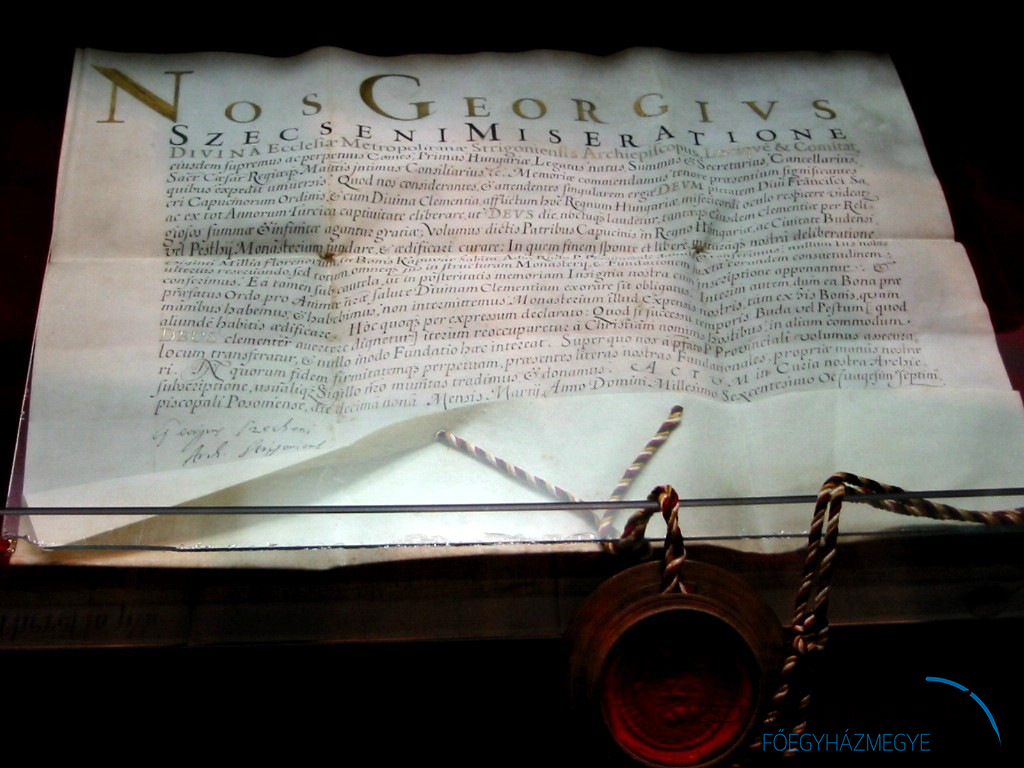 NOS GEORGIVS
SZECSENI MISERATIONE
DIVINA Ecclesiæ Metropolitanæ Strigoniensis Archiepiscopus, Locique & Comitat,
eiusdem supremus ac perpetuus Comes, Primas Hungariæ, Legatus natus, Summus & Secretarius, Cancellarius,
Sacr Cæsar Regiæqs Mattis intimus Consiliarius
quibus expedit universis: Quod nos considerantes, & attendentes singularem erga DEVM pietatem Divi Francisci Sa,
cri Capucinorum Ordinis, & cum Divina Clementia afflictum hoc Regnum Hungariæ, misericordi oculo respicere videat,
ac ex tot Annorum Turcica captivitate eliberare, ut DEVS die, noctuqs laudetur, tantæqs ejusdem Clementiæ per Reli,
giosos summæ & infinitæ agantur gratiæ, Volumus dictis Patribus Capucinis, in Regno Hungariæ, ac Civitate Budensi,
vel Pesthij, Monasterium fundare, & ædificare curare: In quem finem sponte et libere, nostra deliberatione
Millia florenorum
ulterius reservando, sed totum omneqs jus in structuram Monasterij, juxta eorundem consuetudinem
conferimus. Ea tamen sub cautela, ut in posteritatis memoriam Insignia nostra cum inscriptione apponantur: &
præfatus Ordo, pro Animæ salute Divinam Clementiam exorare sit obligatus. Interim autem dum ea Bona præ
manibus habemus, & habebimus, non intermittemus Monasterium illud, Expensis nostris, tam ex his Bonis, quam
aliunde habitis ædificare. Hoc quoqs per expressum declarato: Quod si successu temporis, Buda vel Pestum [quod
DEVS clementer avertere dignetur] iterum reoccuparetur à Christiani nominis hostibus, in alium commodum
locum transferatur, & nullo modo Fundatio hæc intereat. Super quo nos a Provinciali volumus assecura,
ri. IN quorum fidem firmitatemqs perpetuam, præsentes literas nostras Fundationales, propria manus nostræ
subscriptione, usualiqs Sigillo nro munitas tradimus, & donamus. ACTUM in Curia nostra Archie
piscopali Posoniense, die decima nona Mensis Martij Anno Domini, Millesimo Sexcentesimo Octuagesim Septim,
Georgius Szecheni
Arch. Strigoniens
FŐEGYHÁZMEGYE